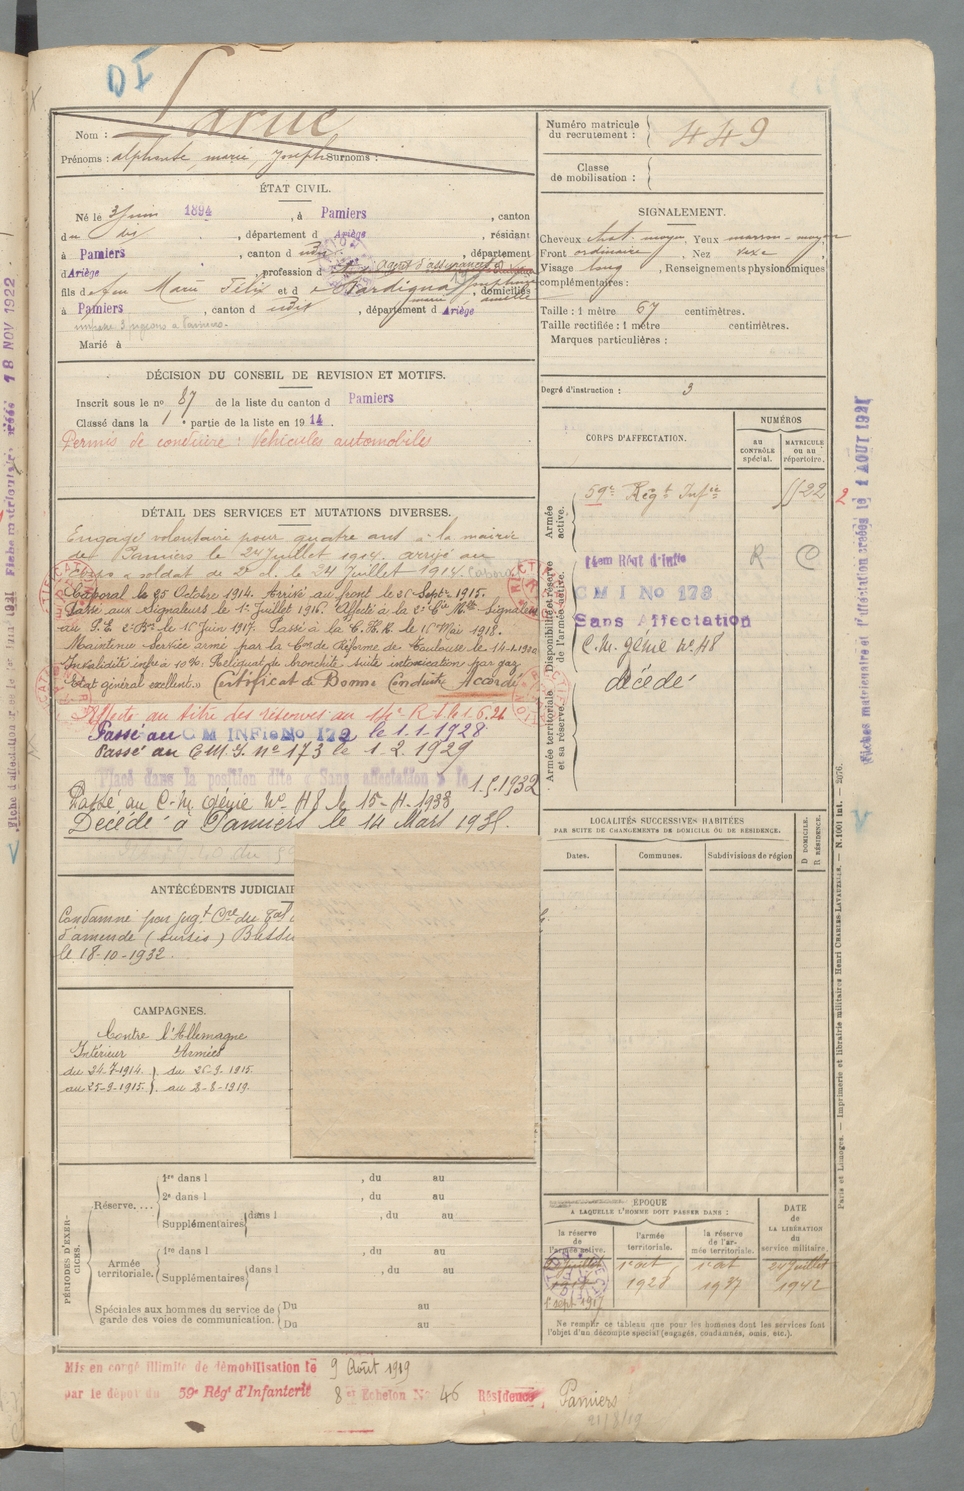 DI
Nom : Larue
Prénoms : alphonse, marie, Joseph Surnoms :
ÉTAT CIVIL.
Né le 3 Juin 1894, à Pamiers, canton
du dit, département d Ariège, résidant
à Pamiers, canton d udit, département
d Ariège, profession d agent d'assurances
fils de feu Marie Félix et d Joséphine, domiciliés
marie amélie
à Pamiers, canton d udit, département d Ariège
Marié à
DÉCISION DU CONSEIL DE REVISION ET MOTIFS.
Inscrit sous le no 87 de la liste du canton d Pamiers
Classé dans la 1e partie de la liste en 1914.
Permis de conduire : Véhicules automobiles
DÉTAIL DES SERVICES ET MUTATIONS DIVERSES.
Engagé volontaire pour quatre ans à la mairie
de Pamiers le 24 Juillet 1914. arrivé au
corps & soldat de 2e cl. le 24 Juillet 1914.
Caporal le 25 Octobre 1914. Arrivé au front le 26 Septre 1915.
Passé aux Signaleurs le 1er Juillet 1916. Affecté à la 2e Cie Mlle Signaleur
au P.E. 2e Bon le 16 Juin 1917. Passé à la C.H.R. le 16 Mai 1918.
Maintenu service armé par la Con de Réforme de Toulouse le 14-1-1920
Invalidité infre à 10%. Reliquat de bronchite suite intoxication par gaz
Etat général excellent. Certificat de Bonne Conduite Accordé
Affecté au titre des réserves au 14e R.I. le 1.6.21
Passé au C M INFie No 179 le 1-1-1928
Passé au C.M.I. no 173 le 1.2.1929
Placé dans la position dite « Sans affectation » le 1.5.1932
Passé au C.M. Génie No 48 le 15-4-1933
Décédé à Pamiers le 14 Mars 1935.
ANTÉCÉDENTS JUDICIAIR
Condamné par Jugt Cre du Tal
d'amende (sursis)
le 18-10-1932.
CAMPAGNES.
Contre l'Allemagne
Intérieur Armées
du 24-7-1914. } du 26-9-1915.
au 25-9-1915. } au 8-8-1919.
PÉRIODES D'EXERCICES.
Réserve.... 1re dans l , du au
2e dans l , du au
Supplémentaires dans l , du au
Armée territoriale. 1re dans l , du au
Supplémentaires dans l , du au
Spéciales aux hommes du service de garde des voies de communication. Du au
Du au
Mis en congé illimité de démobilisation le 9 Août 1919
par le dépôt du 59e Régt d'Infanterie 8e Echelon No 46 Résidence, Pamiers
21/8/19
Numéro matricule du recrutement : 449
Classe de mobilisation :
SIGNALEMENT.
Cheveux chat. moyen, Yeux marron-moyen
Front ordinaire, Nez vexe,
Visage long, Renseignements physionomiques
complémentaires :
Taille : 1 mètre 67 centimètres.
Taille rectifiée : 1 mètre centimètres.
Marques particulières :
Degré d'instruction : 3
CORPS D'AFFECTATION.
NUMÉROS
AU CONTRÔLE spécial.
MATRICULE OU AU répertoire.
Armée active.
59e Régt Infie 5522
2
Disponibilité et réserve de l'armée active.
14em Régt d'Infie R C
C M I No 173
Sans Affectation
C.M. Génie No 48
décédé
Armée territoriale et sa réserve.
LOCALITÉS SUCCESSIVES HABITÉES
PAR SUITE DE CHANGEMENTS DE DOMICILE OU DE RÉSIDENCE.
Dates. Communes. Subdivisions de région
D DOMICILE.
R RÉSIDENCE.
ÉPOQUE
A LAQUELLE L'HOMME DOIT PASSER DANS :
la réserve de l'armée active.
l'armée territoriale.
la réserve de l'armée territoriale.
DATE de LA LIBÉRATION du service militaire.
1 sept 1917
1er oct 1928
1er oct 1937
24 Juillet 1942
Ne remplir ce tableau que pour les hommes dont les services font
l'objet d'un décompte spécial (engagés, condamnés, omis, etc.).
Paris et Limoges. — Imprimerie et librairie militaires Henri CHARLES-LAVAUZELLE. — N. 1001 Int. — 2076.
Fiches matriculaire et d'affectation créées le 1 AOUT 1921
18 NOV 1922